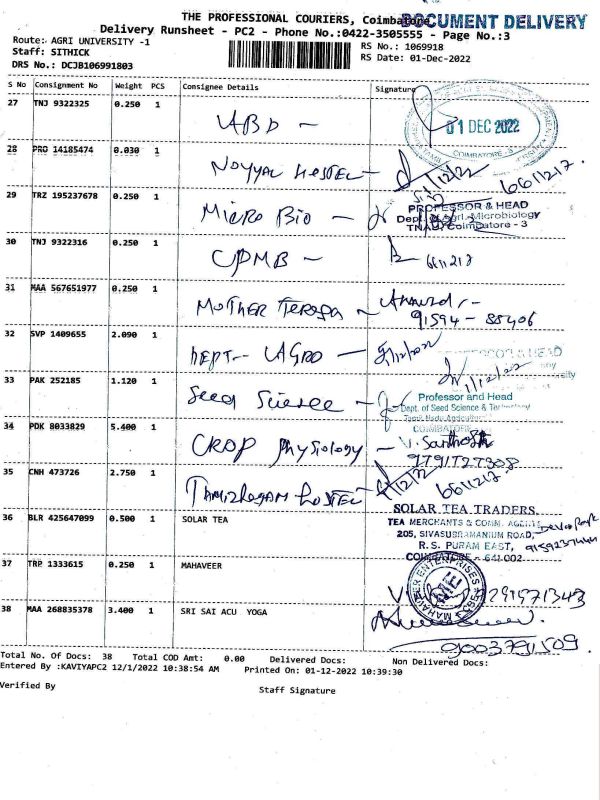 THE PROFESSIONAL COURIERS, Coimbatore
DOCUMENT DELIVERY
Delivery Runsheet - PC2 - Phone No.:0422-3505555 - Page No.:3
Route: AGRI UNIVERSITY -1
RS No.: 1069918
Staff: SITHICK
RS Date: 01-Dec-2022
DRS No.: DCJB106991803
S No Consignment No Weight PCS Consignee Details Signature
27 TNJ 9322325 0.250 1
ABD -
01 DEC 2022
COIMBATORE - 3
28 PRG 14185474 0.030 1
Noyyal Hostel - 1/12/22
6611217
29 TRZ 195237678 0.250 1
Micro Bio -
PROFESSOR & HEAD
Dept. of Agrl. Microbiology
TNAU, Coimbatore - 3
30 TNJ 9322316 0.250 1
CPMB - 6611217
31 MAA 567651977 0.250 1
Mother Teresa -
91594-88406
32 SVP 1409655 2.090 1
Dept - Agro - 1/12/2022
& HEAD
33 PAK 252185 1.120 1
Seed Science - 1/12/22
Professor and Head
Dept. of Seed Science & Technology
Tamil Nadu Agricultural
COIMBATORE
34 PDK 8033829 5.400 1
Crop Physiology - V. Santhosh
9791727308
35 CNH 473726 2.750 1
Thamizhagam Hostel 1/12/22
6611217
36 BLR 425647099 0.500 1 SOLAR TEA
SOLAR TEA TRADERS,
TEA MERCHANTS & COMM. AGENTS
205, SIVASUBRAMANIUM ROAD,
R.S. PURAM EAST,
COIMBATORE - 641 002
9159237444
37 TRP 1333615 0.250 1 MAHAVEER
MAHAVEER ENTERPRISES
38 MAA 268835378 3.400 1 SRI SAI ACU YOGA
9003791509.
Total No. Of Docs: 38 Total COD Amt: 0.00 Delivered Docs: Non Delivered Docs:
Entered By :KAVIYAPC2 12/1/2022 10:38:54 AM Printed On: 01-12-2022 10:39:30
Verified By
Staff Signature